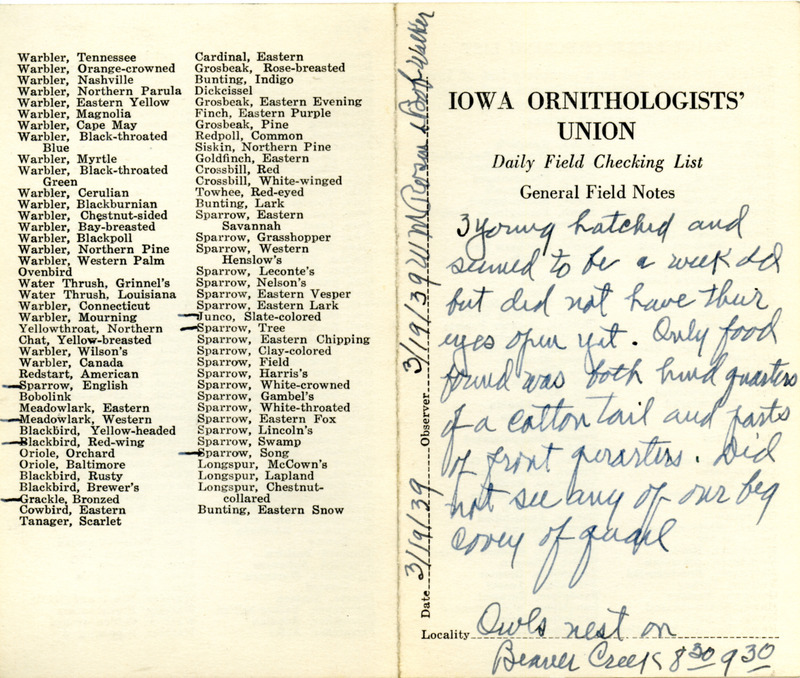 Warbler, Tennessee
Warbler, Orange-crowned
Warbler, Nashville
Warbler, Northern Parula
Warbler, Eastern Yellow
Warbler, Magnolia
Warbler, Cape May
Warbler, Black-throated
Blue
Warbler, Myrtle
Warbler, Black-throated
Green
Warbler, Cerulian
Warbler, Blackburnian
Warbler, Chestnut-sided
Warbler, Bay-breasted
Warbler, Blackpoll
Warbler, Northern Pine
Warbler, Western Palm
Ovenbird
Water Thrush, Grinnel's
Water Thrush, Louisiana
Warbler, Connecticut
Warbler, Mourning
Yellowthroat, Northern
Chat, Yellow-breasted
Warbler, Wilson's
Warbler, Canada
Redstart, American
Sparrow, English
Bobolink
Meadowlark, Eastern
Meadowlark, Western
Blackbird, Yellow-headed
Blackbird, Red-wing
Oriole, Orchard
Oriole, Baltimore
Blackbird, Rusty
Blackbird, Brewer's
Grackle, Bronzed
Cowbird, Eastern
Tanager, Scarlet
Cardinal, Eastern
Grosbeak, Rose-breasted
Bunting, Indigo
Dickcissel
Grosbeak, Eastern Evening
Finch, Eastern Purple
Grosbeak, Pine
Redpoll, Common
Siskin, Northern Pine
Goldfinch, Eastern
Crossbill, Red
Crossbill, White-winged
Towhee, Red-eyed
Bunting, Lark
Sparrow, Eastern
Savannah
Sparrow, Grasshopper
Sparrow, Western
Henslow's
Sparrow, Leconte's
Sparrow, Nelson's
Sparrow, Eastern Vesper
Sparrow, Eastern Lark
Junco, Slate-colored
Sparrow, Tree
Sparrow, Eastern Chipping
Sparrow, Clay-colored
Sparrow, Field
Sparrow, Harris's
Sparrow, White-crowned
Sparrow, Gambel's
Sparrow, White-throated
Sparrow, Eastern Fox
Sparrow, Lincoln's
Sparrow, Swamp
Sparrow, Song
Longspur, McCown's
Longspur, Lapland
Longspur, Chestnut-
collared
Bunting, Eastern Snow
Date 3/19/39 Observer 3/19/39 W M Rosen & Bob Walker
IOWA ORNITHOLOGISTS'
UNION
Daily Field Checking List
General Field Notes
3 young hatched and
seemed to be a week old
but did not have their
eyes open yet. Only food
found was both hind quarters
of a cotton tail and parts
of front qurarters. Did
not see any of our big
covey of quail
Locality Owls nest on
Beaver Creek 8 30 9 30